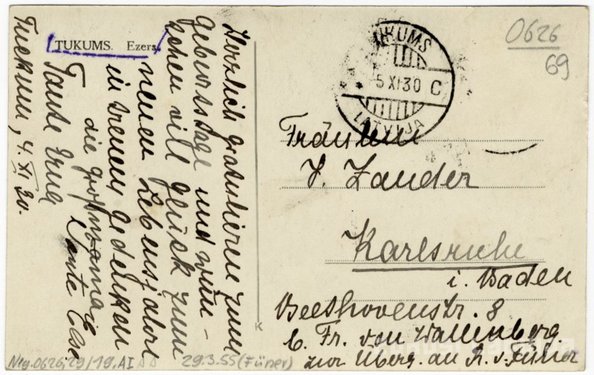 TUKUMS. Ezers.
Herzlich gratulieren zum
Geburtstage und wün-
schen viel Glück zum
neuen Lebensjahre
in treuem Gedenken
die
Tante Erna
Tuckum, 4. XI 30.
TUKUMS
5 XI 30 C
LATVIJA
0626
69
Fräulein
J. Zander
Karlsruhe
i. Baden
Beethovenstr. 8
b. Fr. von Wallenberg
zur Überg. an R. v. Füner
Neg. 0626, 29/19, AI
29.3.55 (Füner)
K